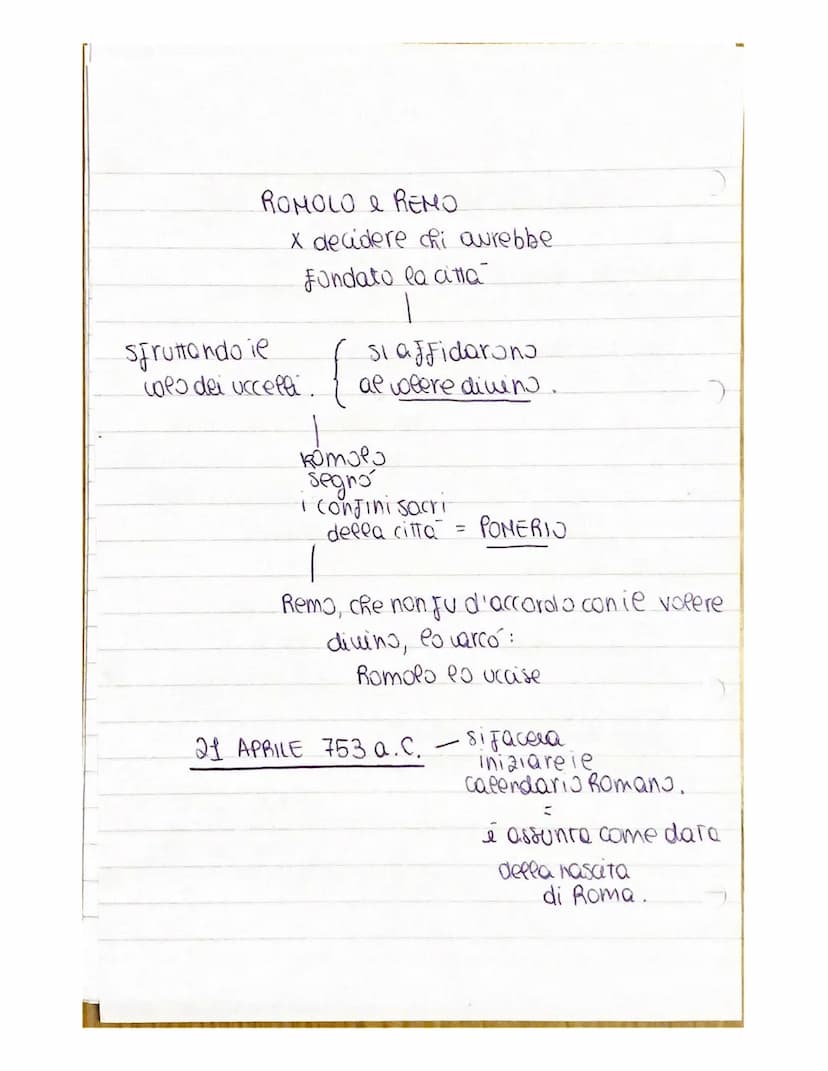 ROMOLO e REMO
x decidere chi avrebbe
fondato la città
sfruttando il
volo dei uccelli.
si affidarono
al volere divino.
Romolo
segnò
i confini sacri
della città = POMERIO
Remo, che non fu d'accordo con il volere
divino, lo varcò:
Romolo lo uccise
21 APRILE 753 a.C. — si faceva
iniziare il
calendario Romano.
=
è assunta come data
della nascita
di Roma.